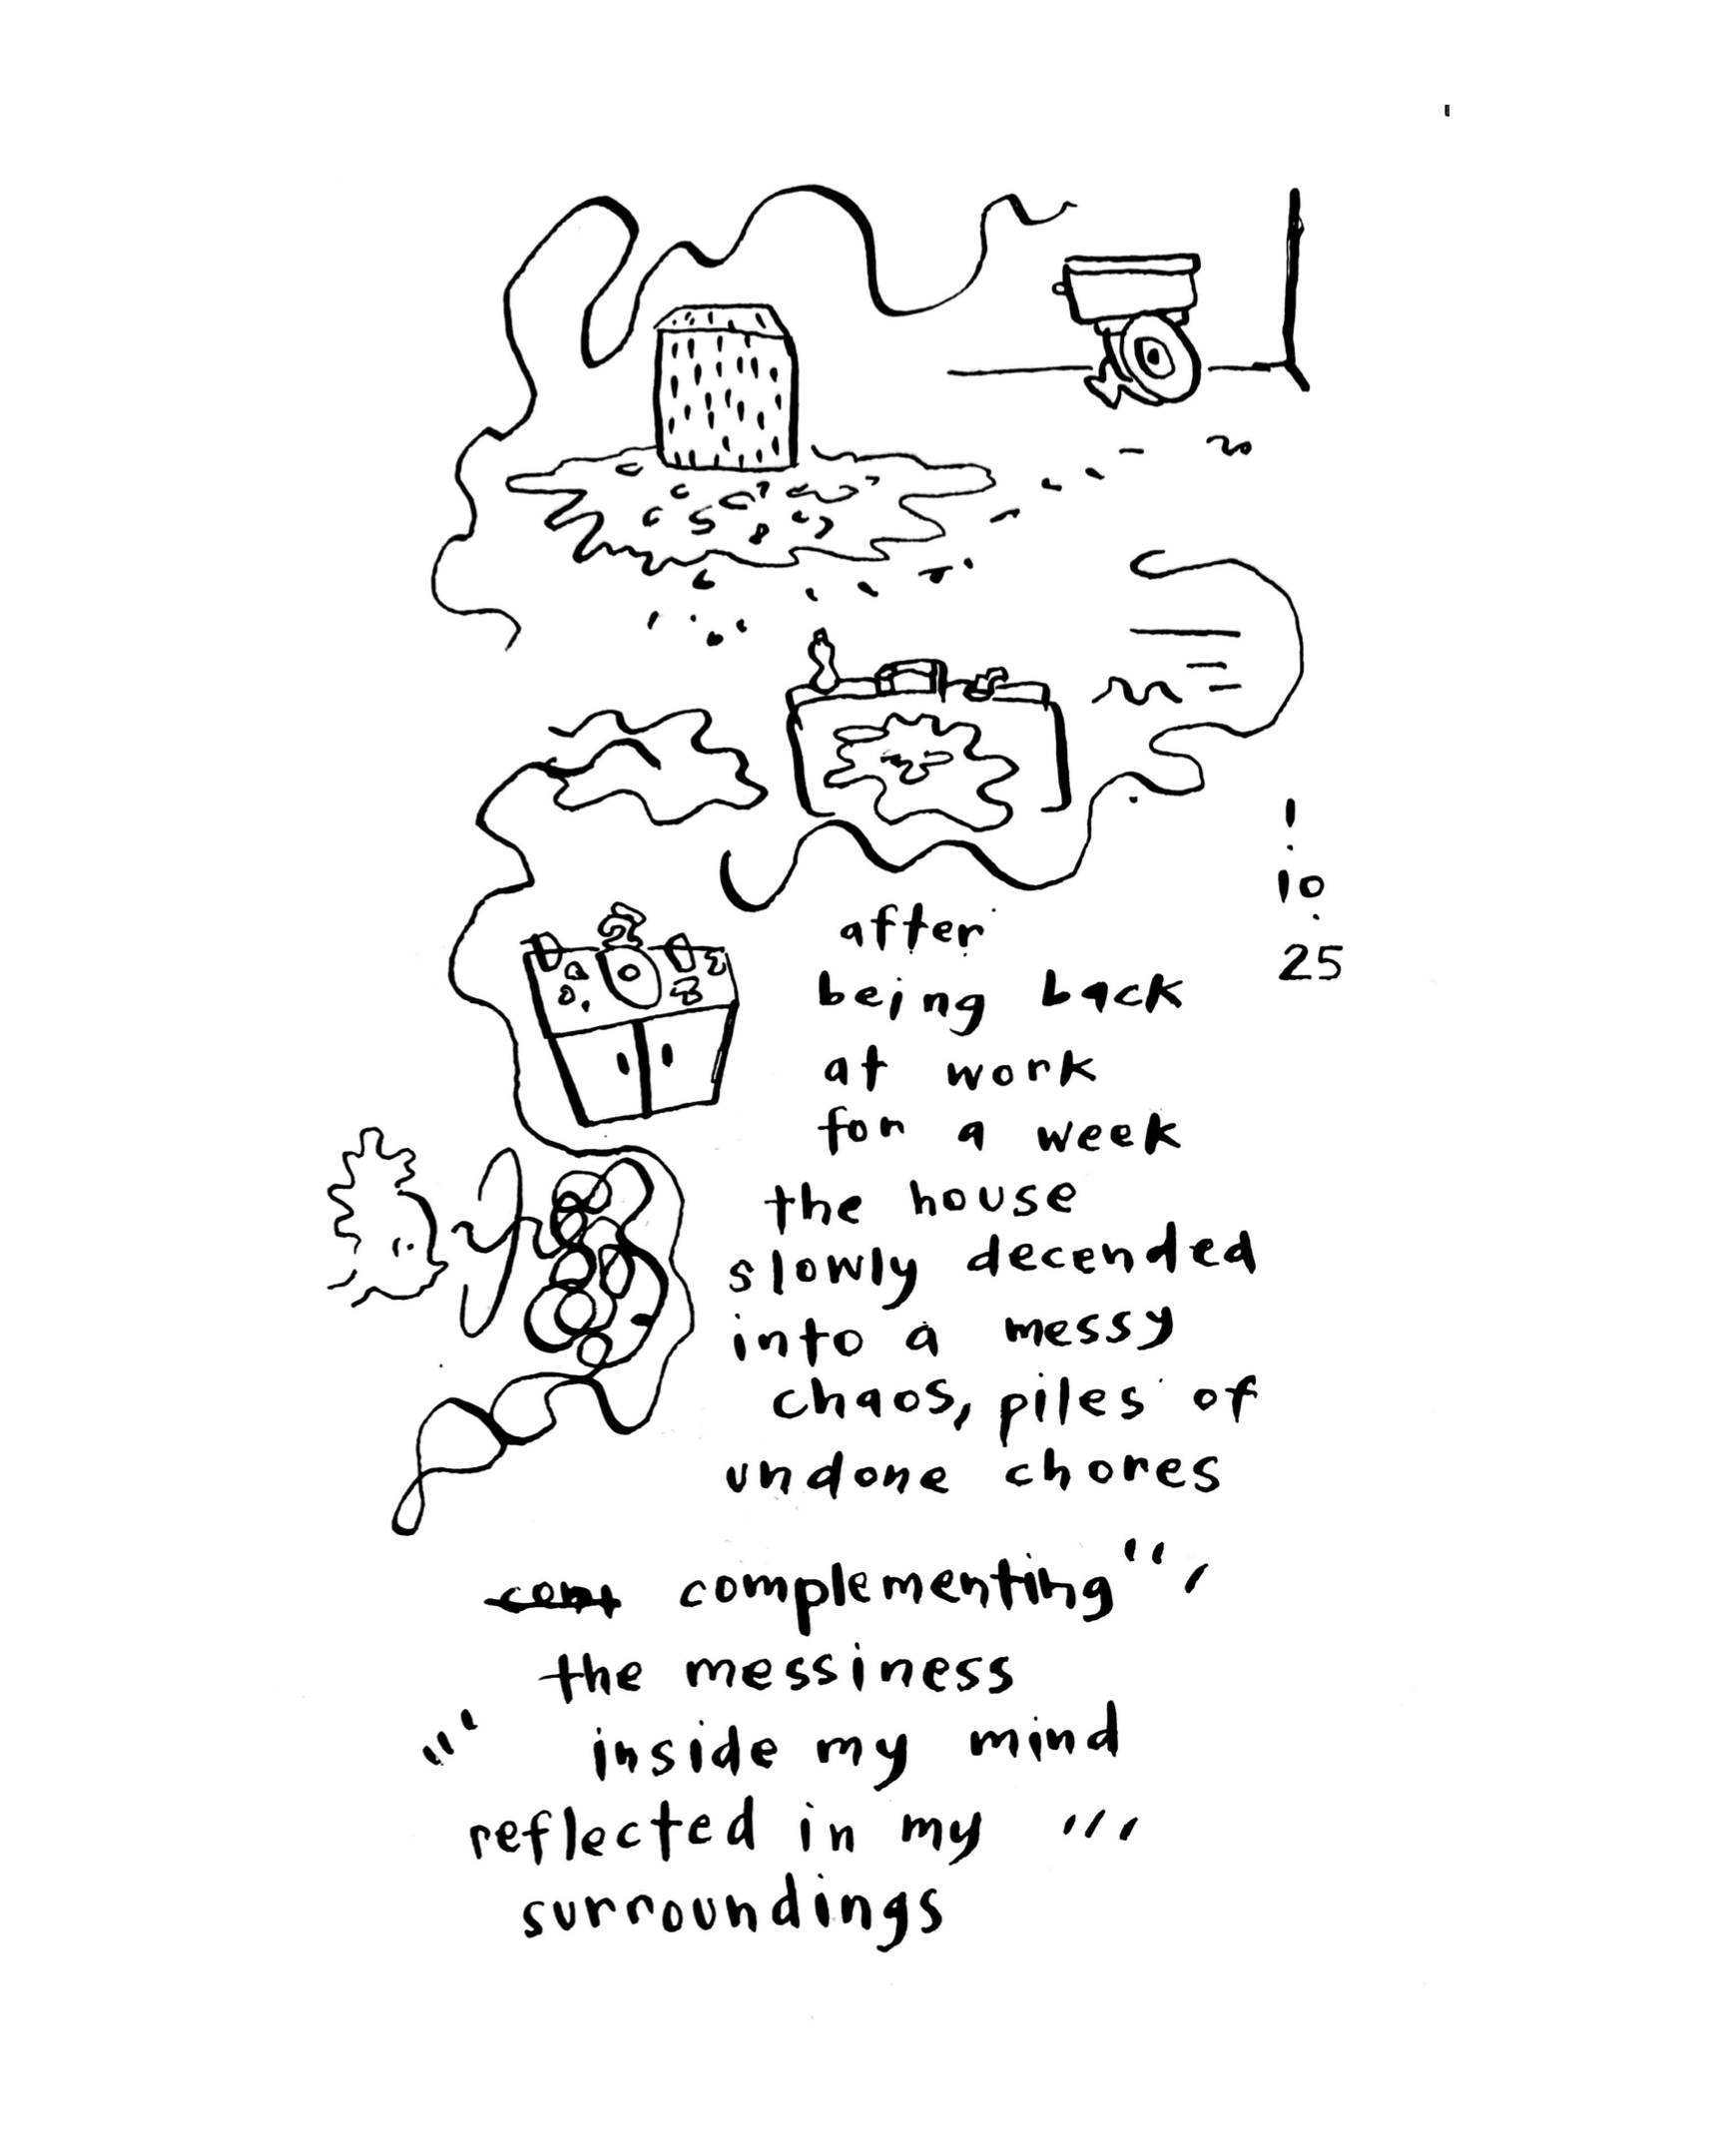 1
.
10
.
25
after
being back
at work
for a week
the house
slowly decended
into a messy
chaos, piles of
undone chores
complementing
the messiness
inside my mind
reflected in my
surroundings